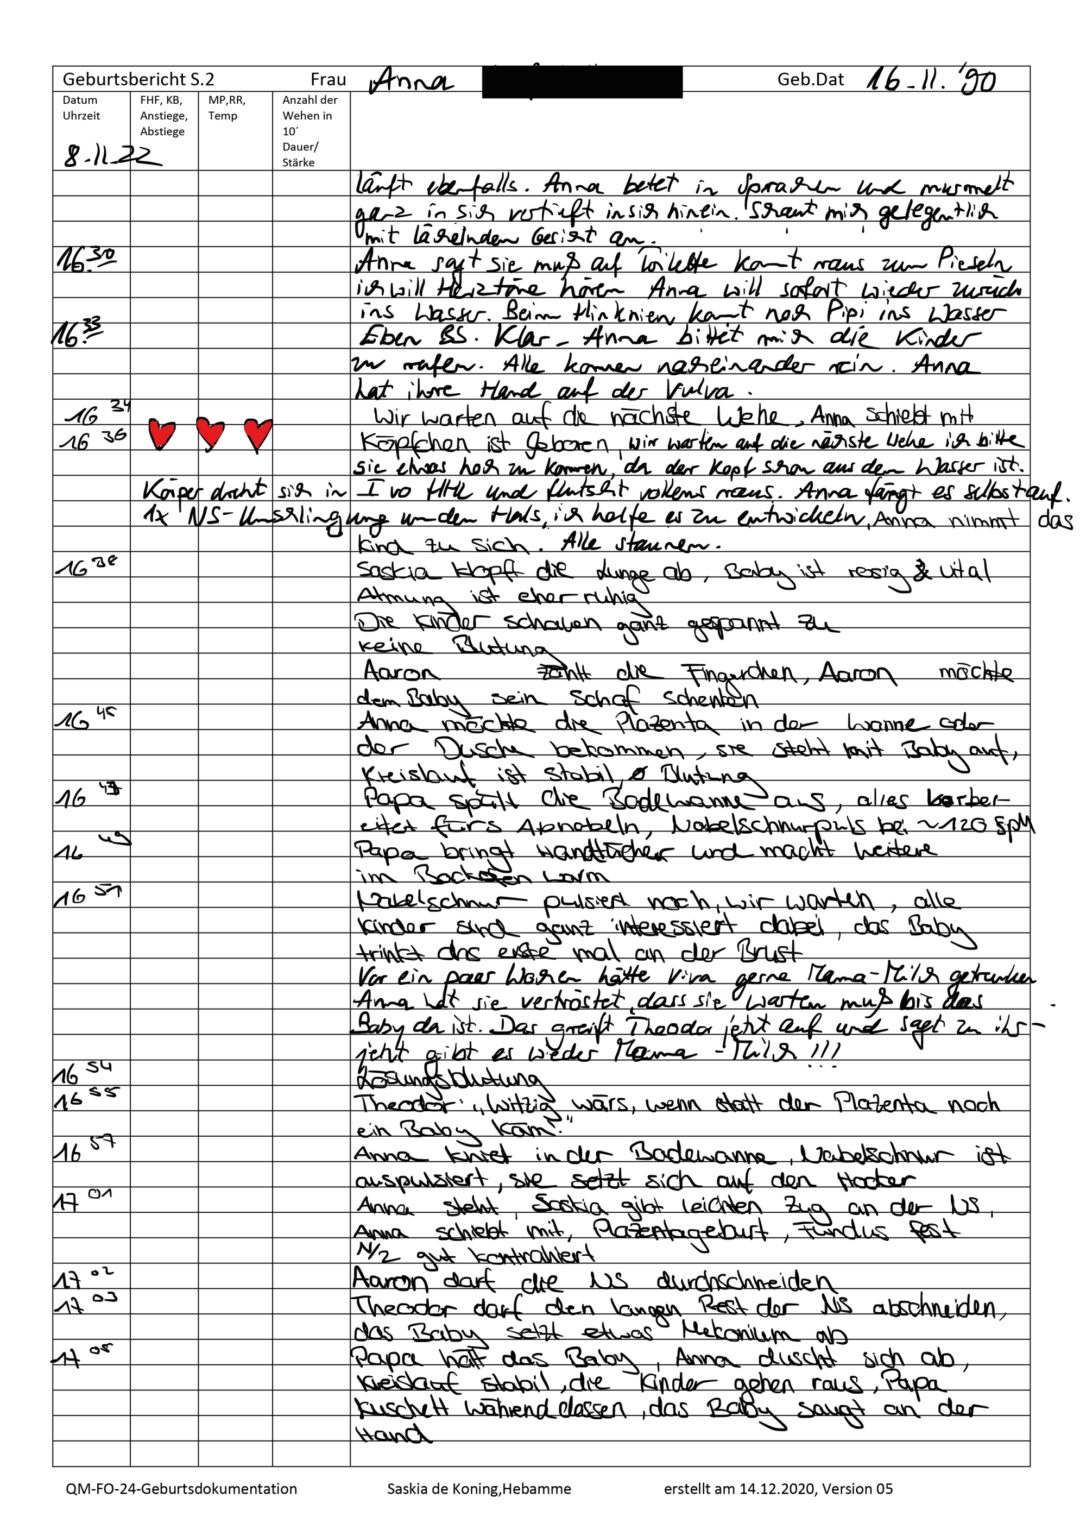 Geburtsbericht S.2 Frau Anna Geb.Dat 16.11.'90
Datum Uhrzeit FHF, KB, Anstiege, Abstiege MP,RR, Temp Anzahl der Wehen in 10´ Dauer/ Stärke
8.11.22
läuft ebenfalls. Anna betet in Sprachen und murmelt
ganz in sich vertieft in sich hinein. Schaut mich gelegentlich
mit lächelndem Gesicht an.
16 30 Anna sagt sie muß auf Toilette komt raus zum Pieseln
ich will Herztöne hören Anna will sofort wieder zurück
ins Wasser. Beim Hinknien komt noch Pipi ins Wasser
16 33 Eben BS. Klar - Anna bittet mich die Kinder
zu rufen. Alle kommen nacheinander rein. Anna
hat ihre Hand auf der Vulva.
16 34 Wir warten auf die nächste Wehe, Anna schiebt mit
16 36 Köpfchen ist geboren, wir warten auf die nächste Wehe ich bitte
sie etwas hoch zu kommen, da der Kopf schon aus dem Wasser ist.
Körper dreht sich in I vo HHL und flutscht vollens raus. Anna fängt es selbst auf.
1x NS-Umschlingung um den Hals, ich helfe es zu entwickeln, Anna nimmt das
Kind zu sich. Alle staunen.
16 38 Saskia klopft die Lunge ab, Baby ist rosig & vital
Atmung ist eher ruhig
Die Kinder schauen ganz gespannt zu
keine Blutung
Aaron zählt die Fingerchen, Aaron möchte
dem Baby sein Schaf schenken
16 45 Anna möchte die Plazenta in der Wanne oder
der Dusche bekommen, sie steht mit Baby auf,
Kreislauf ist stabil, ø Blutung
16 47 Papa spült die Badewanne aus, alles vorber-
eitet fürs Abnabeln, Nabelschnurpuls bei ~120 SpM
16 49 Papa bringt Handtücher und macht weitere
im Backofen warm
16 51 Nabelschnur pulsiert noch, wir warten, alle
Kinder sind ganz interessiert dabei, das Baby
trinkt das erste mal an der Brust
Vor ein paar Wochen hätte Viva gerne Mama-Milch getrunken
Anna hat sie vertröstet, dass sie warten muß bis das
Baby da ist. Das greift Theodor jetzt auf und sagt zu ihr-
jetzt gibt es wieder Mama-Milch!!!
16 54 Lösungsblutung
16 55 Theodor: „Witzig wärs, wenn statt der Plazenta noch
ein Baby käm."
16 57 Anna kniet in der Badewanne, Nabelschnur ist
auspulsiert, sie setzt sich auf den Hocker
17 01 Anna steht, Saskia gibt leichten Zug an der NS,
Anna schiebt mit, Plazentageburt, Fundus fest
N/2 gut kontrahiert
17 02 Aaron darf die NS durchschneiden
17 03 Theodor darf den langen Rest der NS abschneiden,
das Baby setzt etwas Mekonium ab
17 05 Papa hält das Baby, Anna duscht sich ab,
Kreislauf stabil, die Kinder gehen raus, Papa
kuschelt währenddessen, das Baby saugt an der
Hand
QM-FO-24-Geburtsdokumentation Saskia de Koning,Hebamme erstellt am 14.12.2020, Version 05